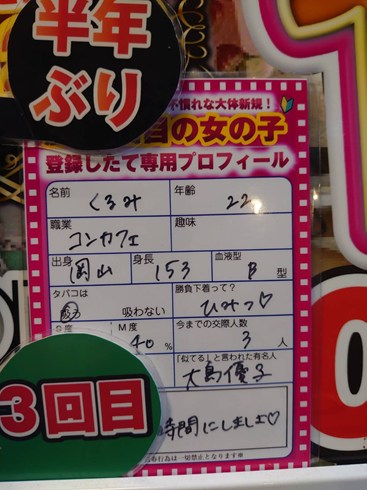 半年
ぶり
不慣れな大体新規!
目の女の子
登録したて専用プロフィール
名前 くるみ 年齢 22
職業 コンカフェ 趣味
出身 岡山 身長 153 血液型 B 型
タバコは 吸わない 勝負下着って? ひみつ♡
M度 40 % 今までの交際人数 3 人
「似てる」と言われた有名人 大島優子
3回目
時間にしましょ♡
行為は一切禁止となります